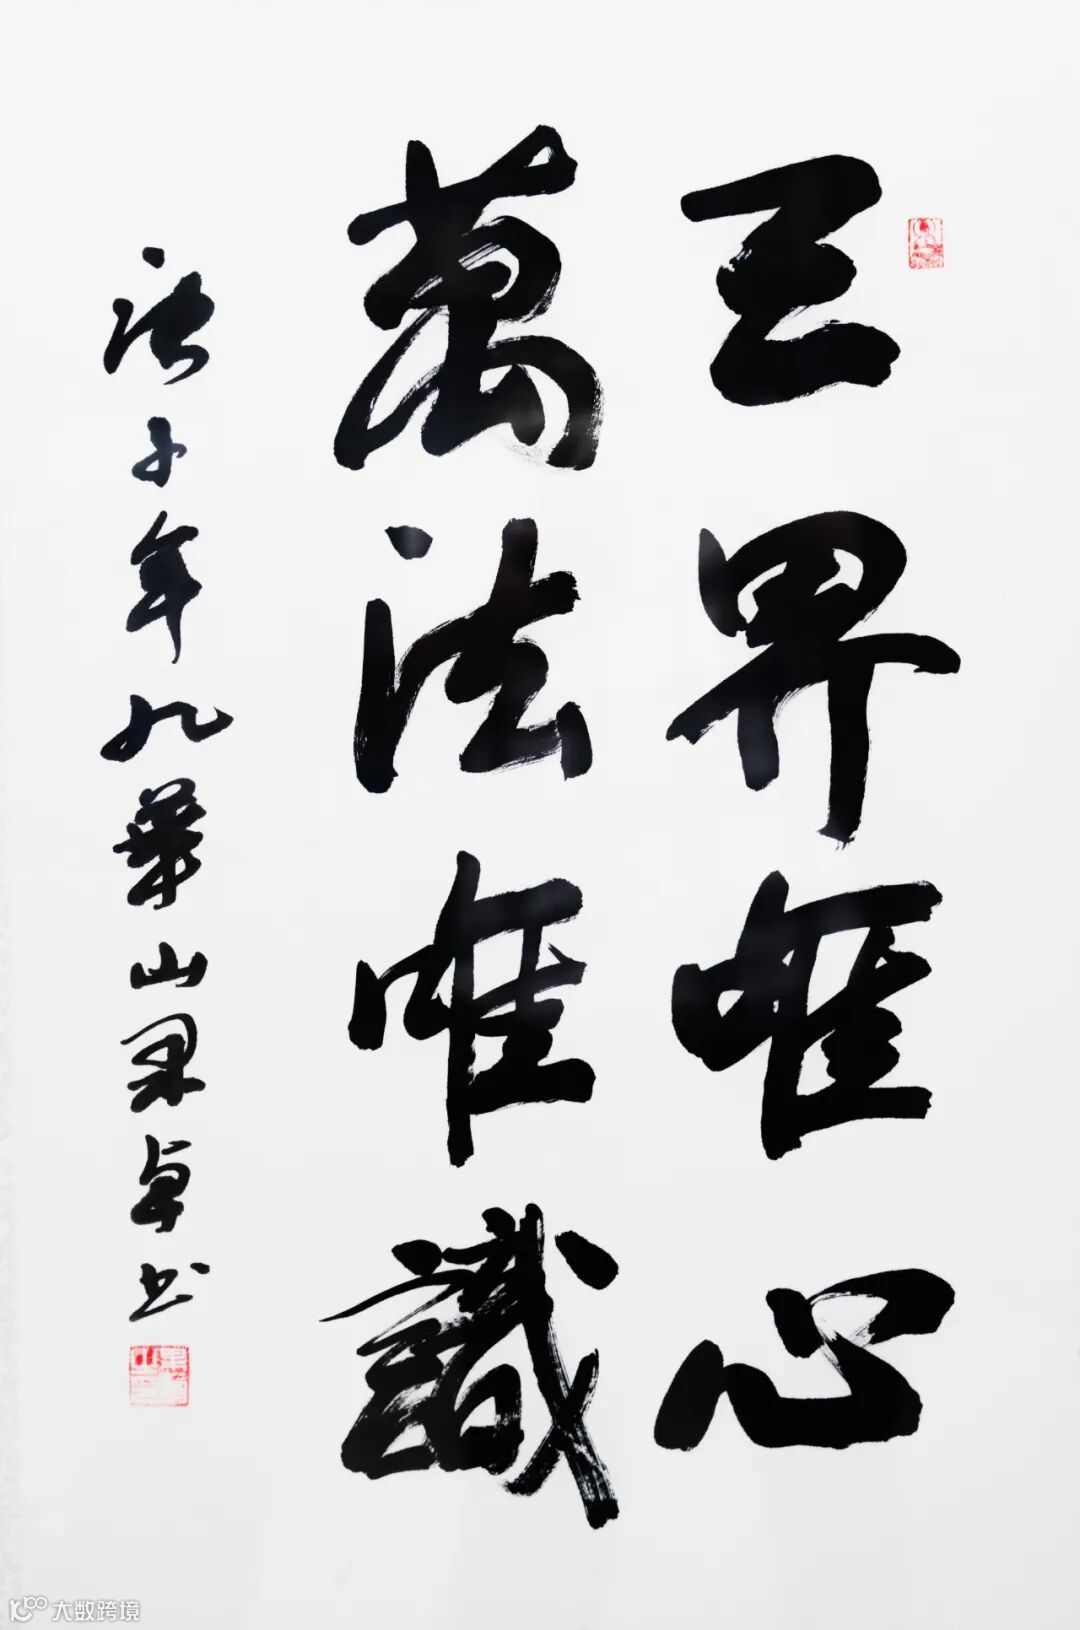 三界唯心
萬法唯識
庚子年九華山果卓书
大数跨境